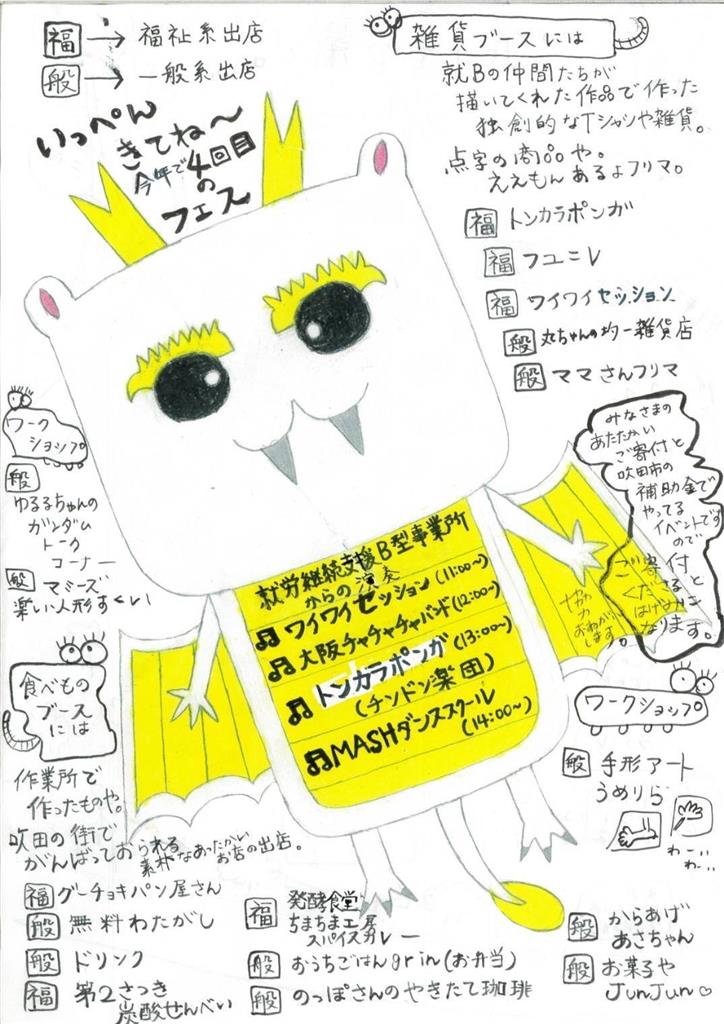 福 → 福祉系出店
般 → 一般系出店
いっぺん
きてね〜
今年で4回目
の
フェス
雑貨ブースには
就Bの仲間たちが
描いてくれた作品で作った
独創的なTシャツや雑貨。
点字の商品や。
ええもんあるよフリマ。
福 トンカラポンガ
福 フユニレ
福 ワイワイセッション
般 丸ちゃんの均一雑貨店
般 ママさんフリマ
みなさまの
あたたかい
ご寄付と
吹田市の
補助金で
やってる
イベントです
ので
ご寄付
くださると
はげみに
なります。
協力
おねがい
します
ワーク
ショップ。
般
ゆるるちゃんの
ガンダム
トーク
コーナー
般 マミーズ
楽しい人形すくい
就労継続支援B型事業所
からの演奏
ワイワイセッション(11:00〜)
大阪チャチャチャバンド(12:00〜)
トンカラポンガ(13:00〜)
(チンドン楽団)
MASHダンススクール
(14:00〜)
食べもの
ブース
には
作業所で
作ったものや。
吹田の街で
がんばっておられる
素朴なあったかい
お店の出店。
福 グーチョキパン屋さん
般 無料わたがし
般 ドリンク
福 第2さつき
炭酸せんべい
福 発酵食堂
ちまちま工房
スパイスカレー
般 おうちごはんgrin(お弁当)
般 のっぽさんのやきたて珈琲
ワークショップ。
般 手形アート
うめりら
わーい、
わーい、
般 からあげ
あさちゃん
般 お菓子や
JunJun♡